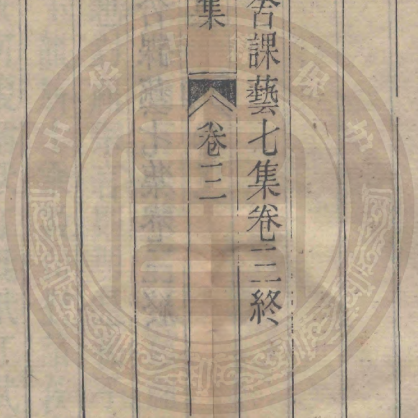 舍課藝七集卷三終
集
卷三